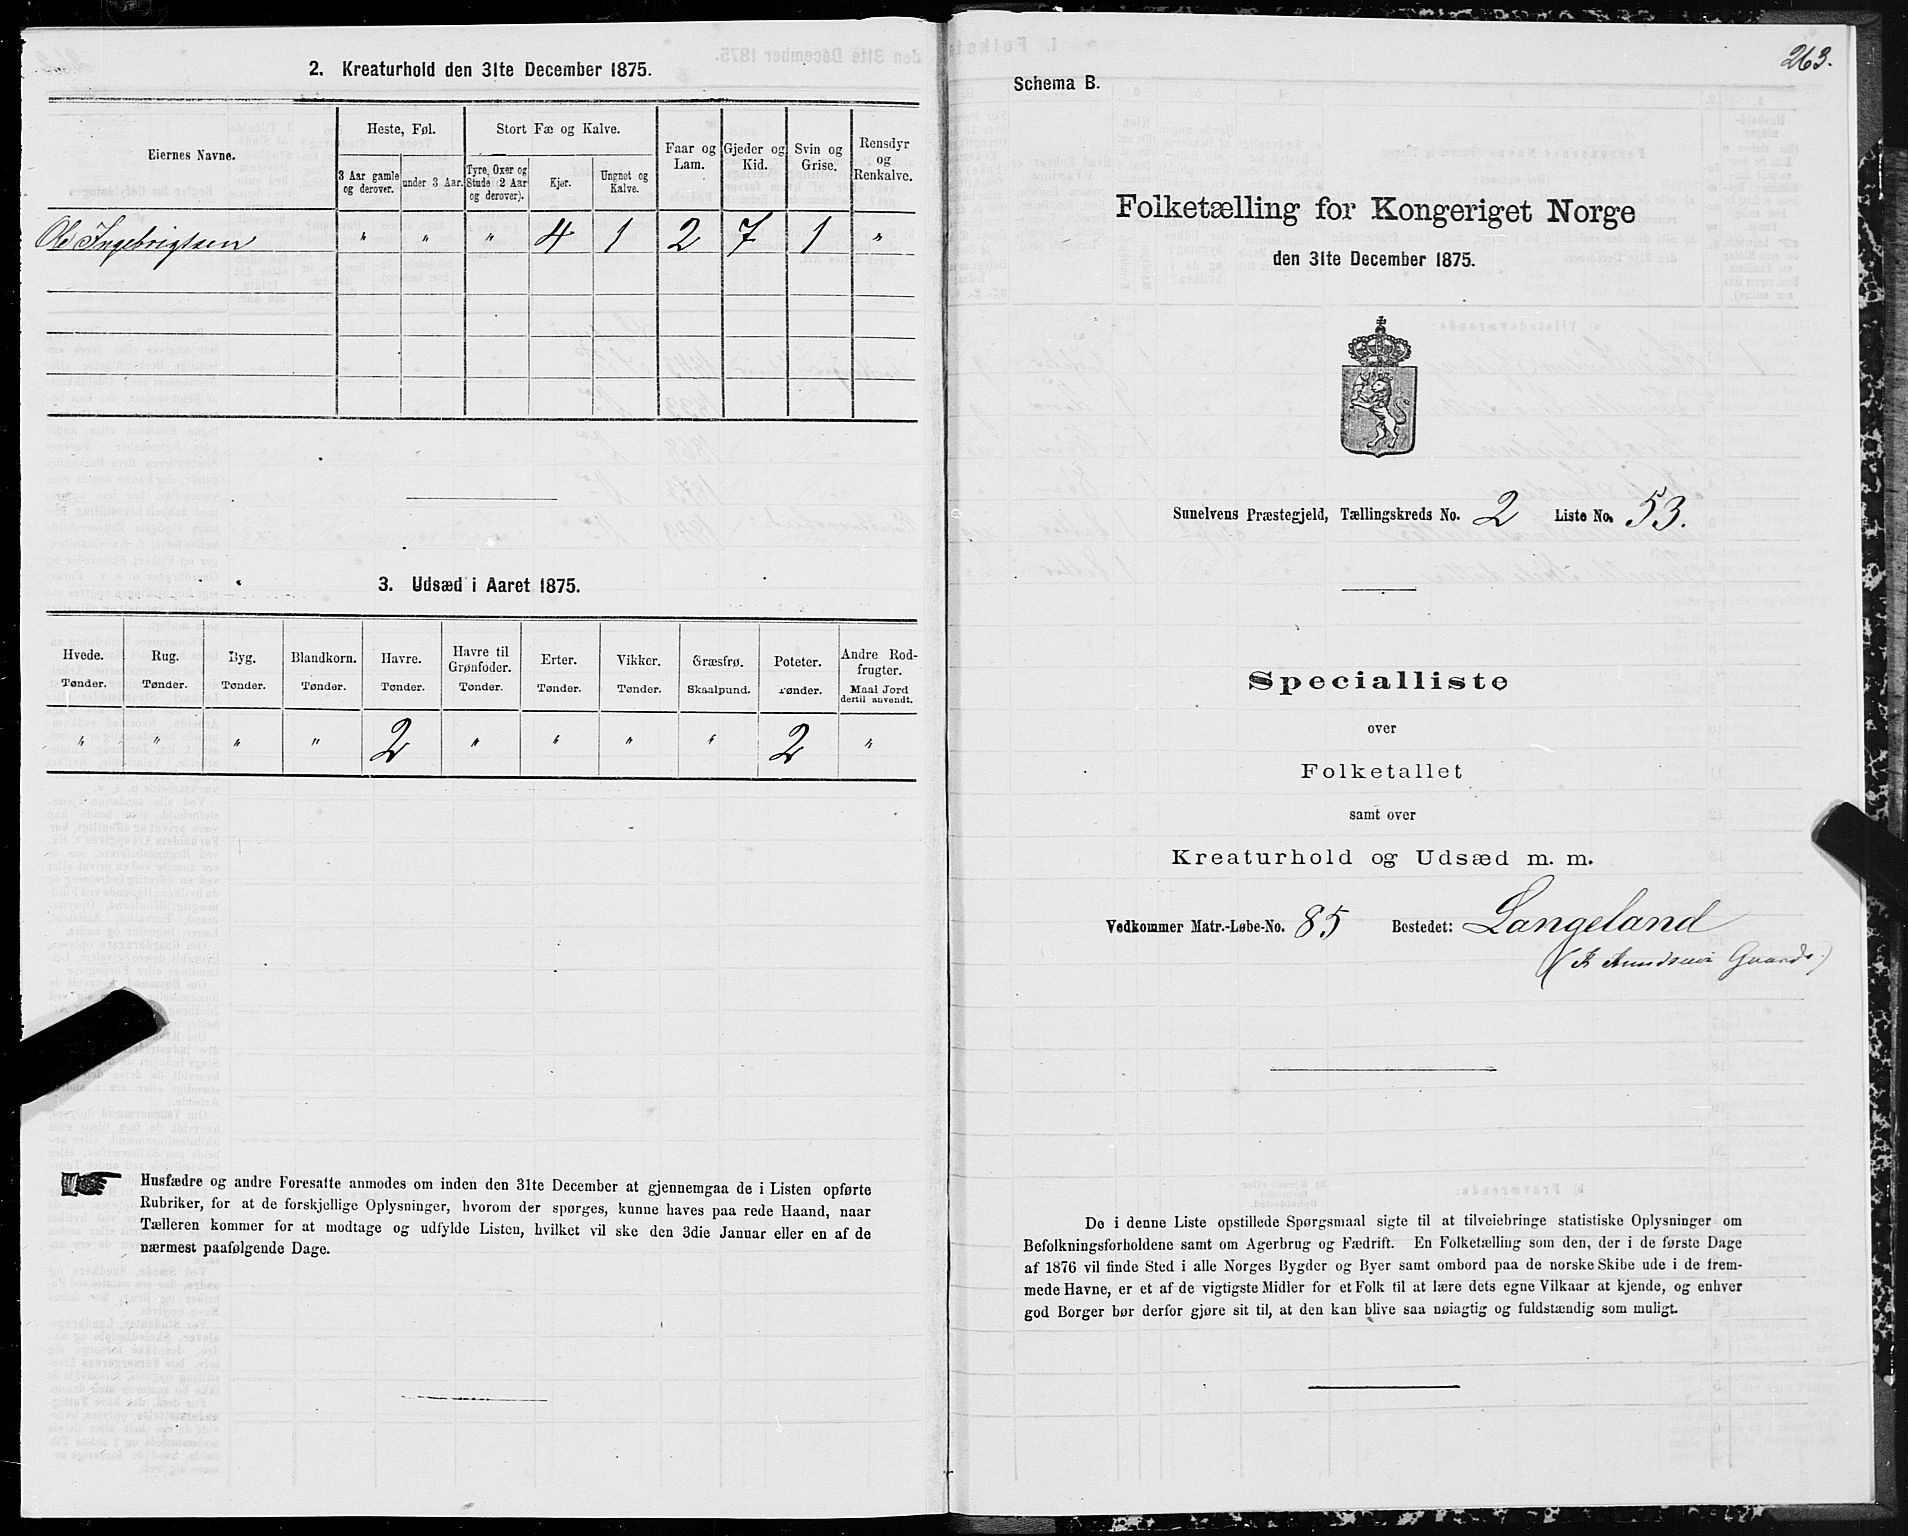 2. Kreaturhold den 31te December 1875.
Eiernes Navne.
Heste, Føl.
Stort Fæ og Kalve.
Faar og Lam.
Gjeder og Kid.
Svin og Grise.
Rensdyr og Renkalve.
3 Aar gamle og derover.
under 3 Aar.
Tyre, Oxer og Stude (2 Aar og derover).
Kjer.
Ungnøt og Kalve.
Ole Ingebrigtsen " " " 4 1 2 7 1 "
3. Udsæd i Aaret 1875.
Hvede. Rug. Byg. Blandkorn. Havre. Havre til Grønfoder. Erter. Vikker. Græsfrø. Poteter. Andre Rodfrugter.
Tønder. Tønder. Tønder. Tønder. Tønder. Tønder. Tønder. Tønder. Skaalpund. Tønder. Maal Jord dertil anvendt.
" " " " 2 " " " " 2 "
Husfædre og andre Foresatte anmodes om inden den 31te December at gjennemgaa de i Listen opførte
Rubriker, for at de forskjellige Oplysninger, hvorom der spørges, kunne haves paa rede Haand, naar
Tælleren kommer for at modtage og udfylde Listen, hvilket vil ske den 3die Januar eller en af de
nærmest paafølgende Dage.
263.
Schema B.
Folketælling for Kongeriget Norge
den 31te December 1875.
Sunelvens Præstegjeld, Tællingskreds No. 2 Liste No. 53.
Specialliste
over
Folketallet
samt over
Kreaturhold og Udsæd m. m.
Vedkommer Matr.-Løbe-No. 85 Bostedet: Langeland
De i denne Liste opstillede Spørgsmaal sigte til at tilveiebringe statistiske Oplysninger om
Befolkningsforholdene samt om Agerbrug og Fædrift. En Folketælling som den, der i de første Dage
af 1876 vil finde Sted i alle Norges Bygder og Byer samt ombord paa de norske Skibe ude i de frem-
mede Havne, er et af de vigtigste Midler for et Folk til at lære dets egne Vilkaar at kjende, og enhver
god Borger bør derfor gjøre sit til, at den kan blive saa nøiagtig og fuldstændig som muligt.